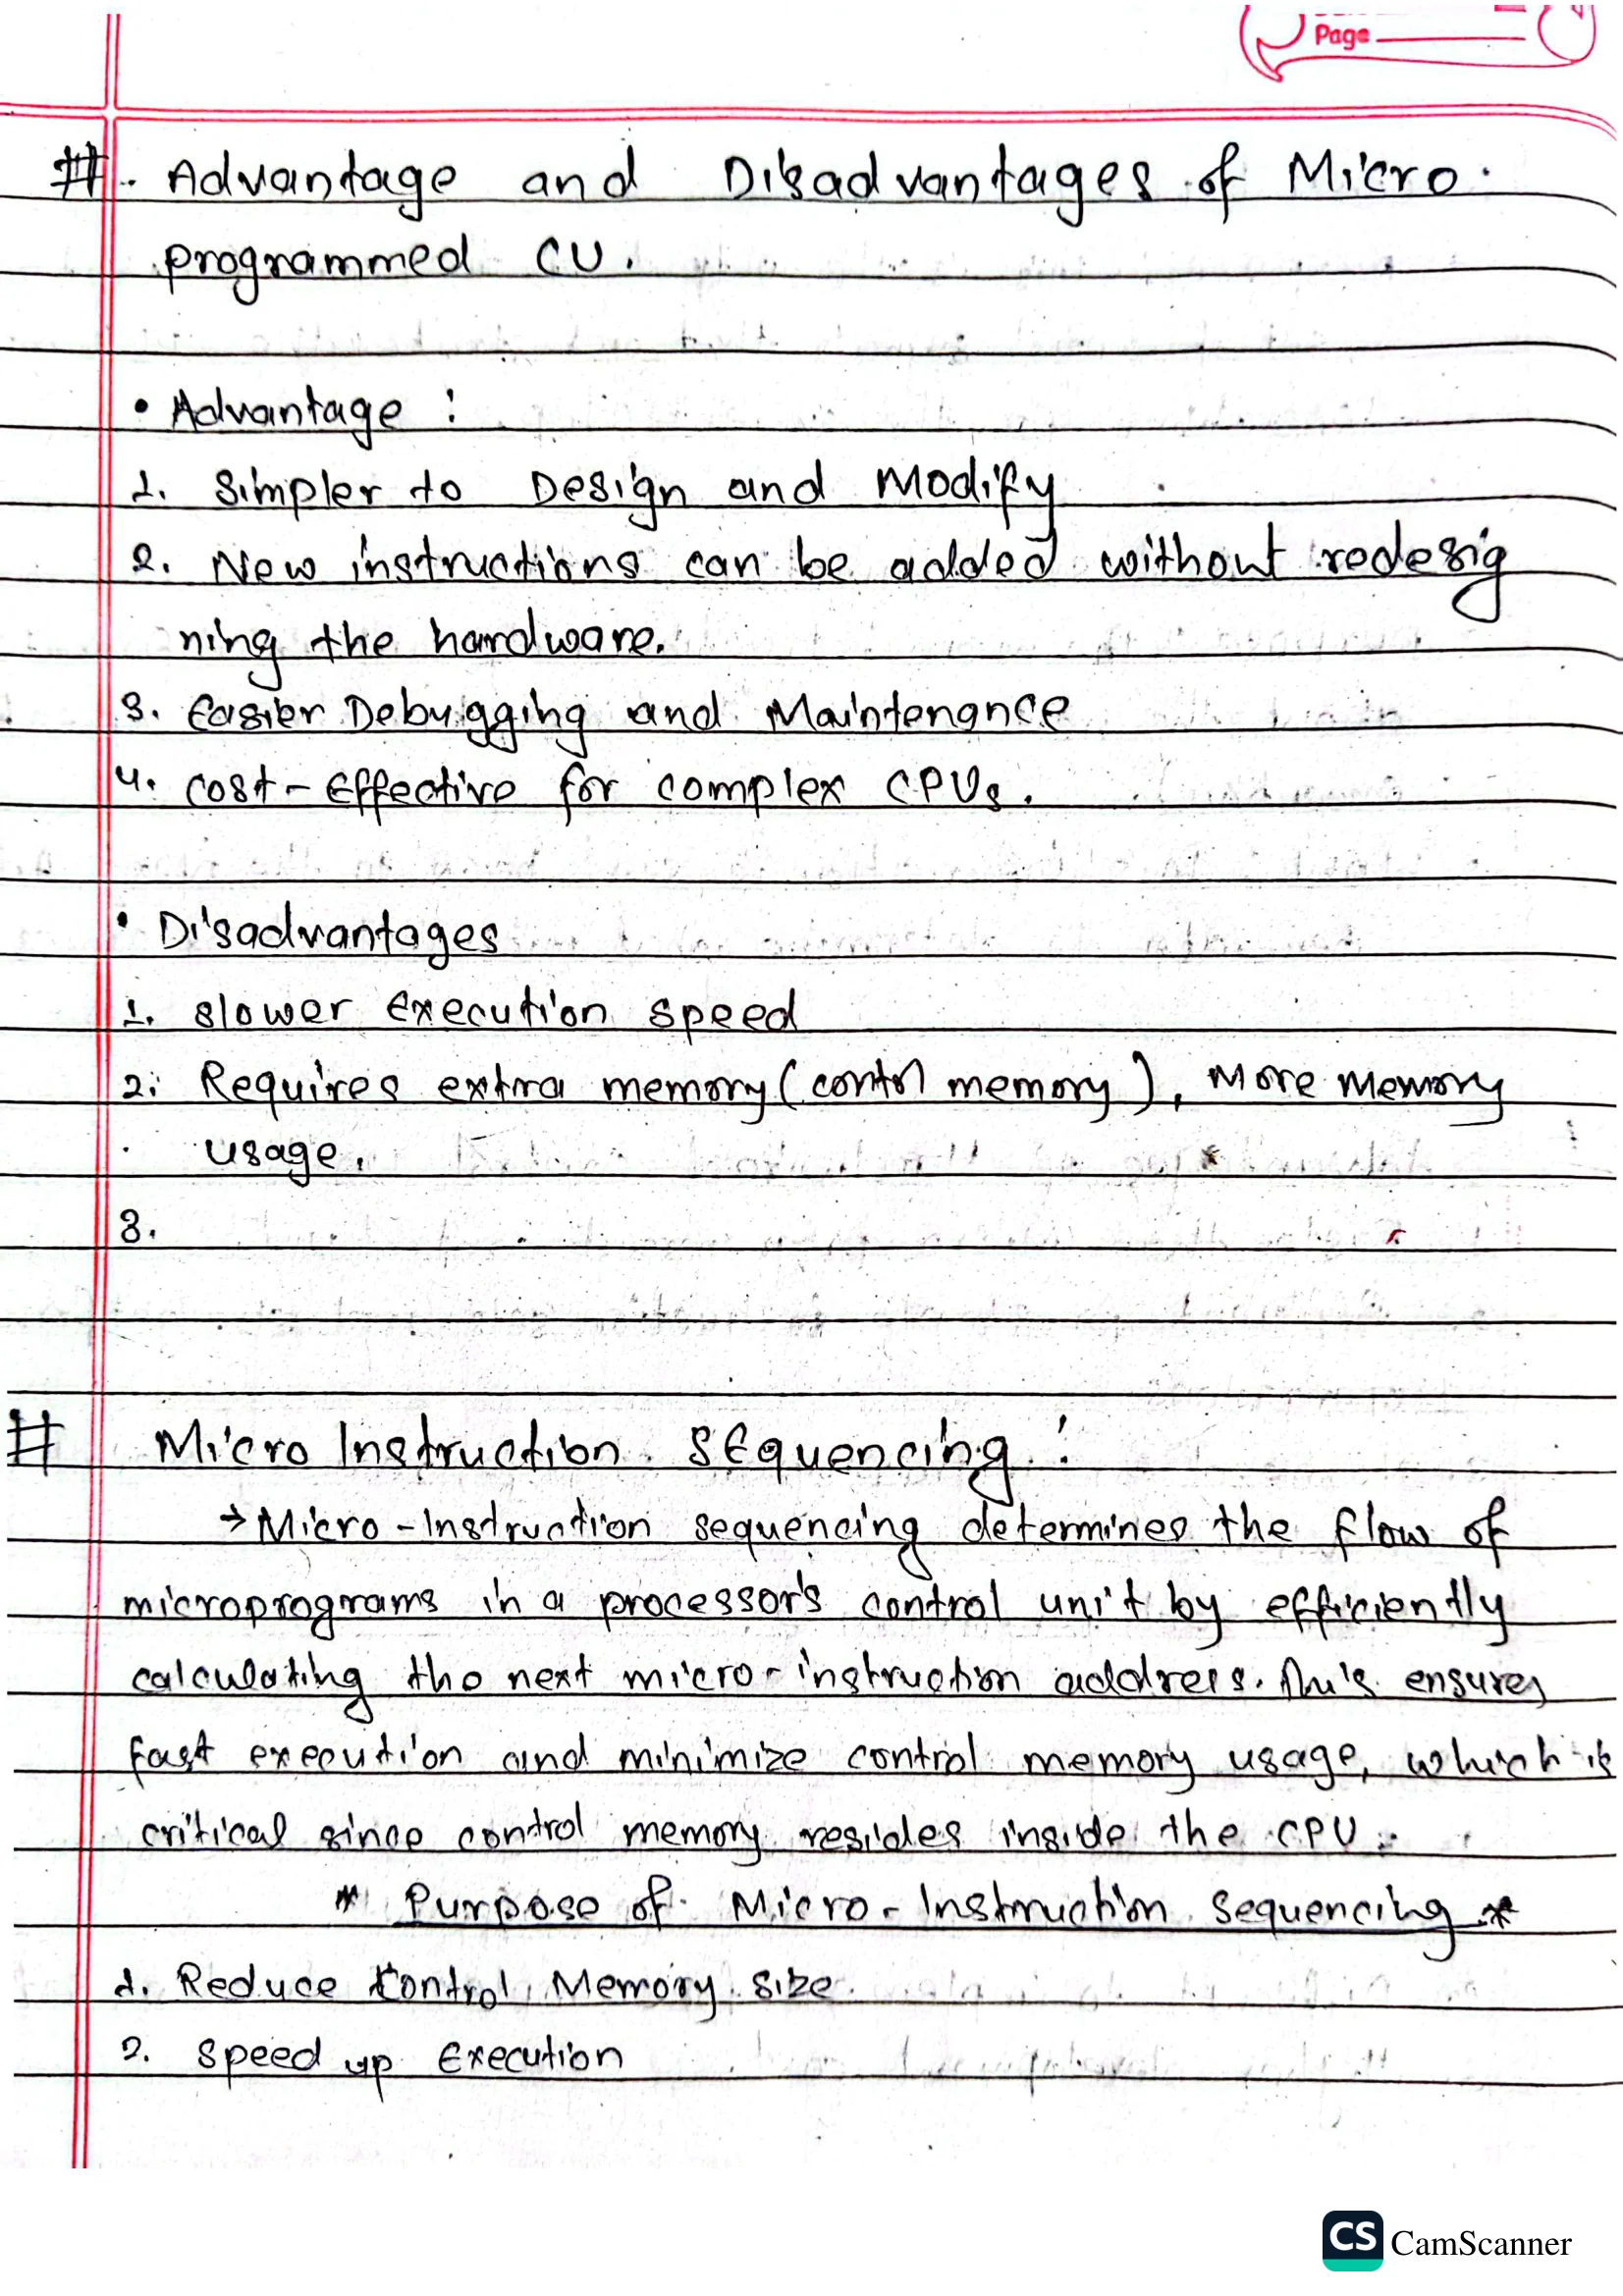 Page
#. Advantage and Disadvantages of Micro.
programmed CU.
• Advantage :
1. Simpler to Design and Modify
2. New instructions can be added without redesig
ning the hardware.
3. Easier Debugging and Maintenance
4. Cost-Effective for complex CPUs.
• Disadvantages
1. slower execution speed
2. Requires extra memory (contrl memory), More Memory
usage.
3.
# Micro Instruction Sequencing :
→ Micro-Instruction sequencing determines the flow of
microprograms in a processor's control unit by efficiently
calculating the next micro-instruction address. This ensures
fast execution and minimize control memory usage, which is
critical since control memory resides inside the CPU.
* Purpose of Micro-Instruction Sequencing *
1. Reduce Control Memory Size
2. Speed up Execution
CS CamScanner